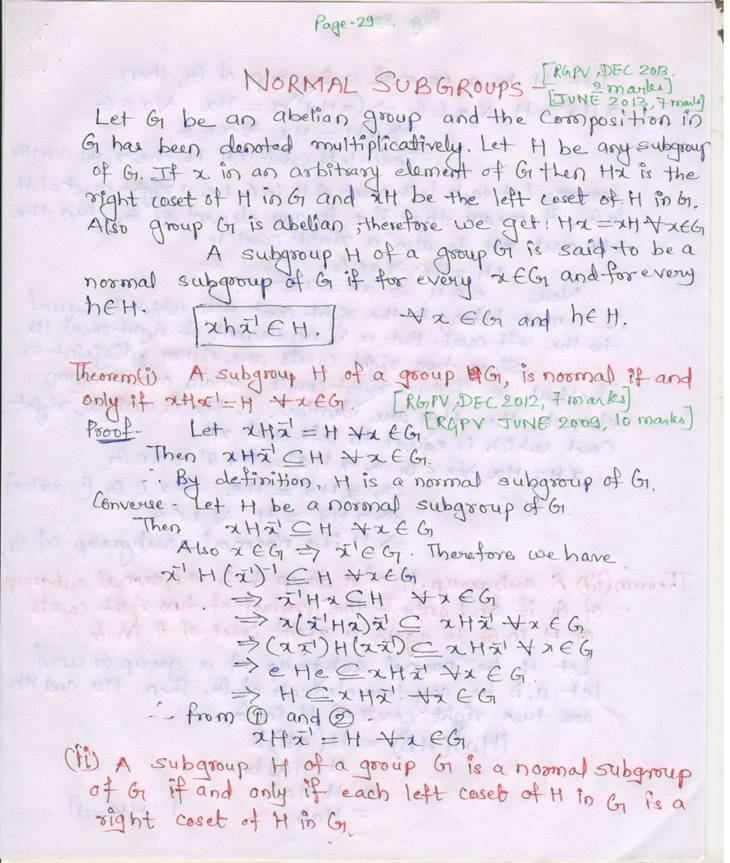 Page-29.
NORMAL SUBGROUPS - [RGPV, DEC 2013, 2 marks]
[JUNE 2013, 7 marks]
Let G be an abelian group and the composition in
G has been denoted multiplicatively. Let H be any subgroup
of G. If x in an arbitrary element of G then Hx is the
right coset of H in G and xH be the left coset of H in G.
Also group G is abelian, therefore we get! Hx = xH ∀ x ∈ G
A subgroup H of a group G is said to be a
normal subgroup of G if for every x ∈ G and for every
h ∈ H.
xhx⁻¹ ∈ H. ∀ x ∈ G and h ∈ H.
Theorem(i) A subgroup H of a group G, is normal if and
only if xHx⁻¹ = H ∀ x ∈ G [RGPV, DEC 2012, 7 marks]
[RGPV JUNE 2009, 10 marks]
Proof- Let xHx⁻¹ = H ∀ x ∈ G
Then xHx⁻¹ ⊆ H ∀ x ∈ G.
∴ By definition, H is a normal subgroup of G.
Converse - Let H be a normal subgroup of G.
Then xHx⁻¹ ⊆ H ∀ x ∈ G
Also x ∈ G ⇒ x⁻¹ ∈ G. Therefore we have
x⁻¹H(x⁻¹)⁻¹ ⊆ H ∀ x ∈ G
⇒ x⁻¹Hx ⊆ H ∀ x ∈ G
⇒ x(x⁻¹Hx)x⁻¹ ⊆ xHx⁻¹ ∀ x ∈ G
⇒ (xx⁻¹)H(xx⁻¹) ⊆ xHx⁻¹ ∀ x ∈ G
⇒ eHe ⊆ xHx⁻¹ ∀ x ∈ G
⇒ H ⊆ xHx⁻¹ ∀ x ∈ G
∴ from ① and ②
xHx⁻¹ = H ∀ x ∈ G
(ii) A subgroup H of a group G is a normal subgroup
of G if and only if each left coset of H in G is a
right coset of H in G.